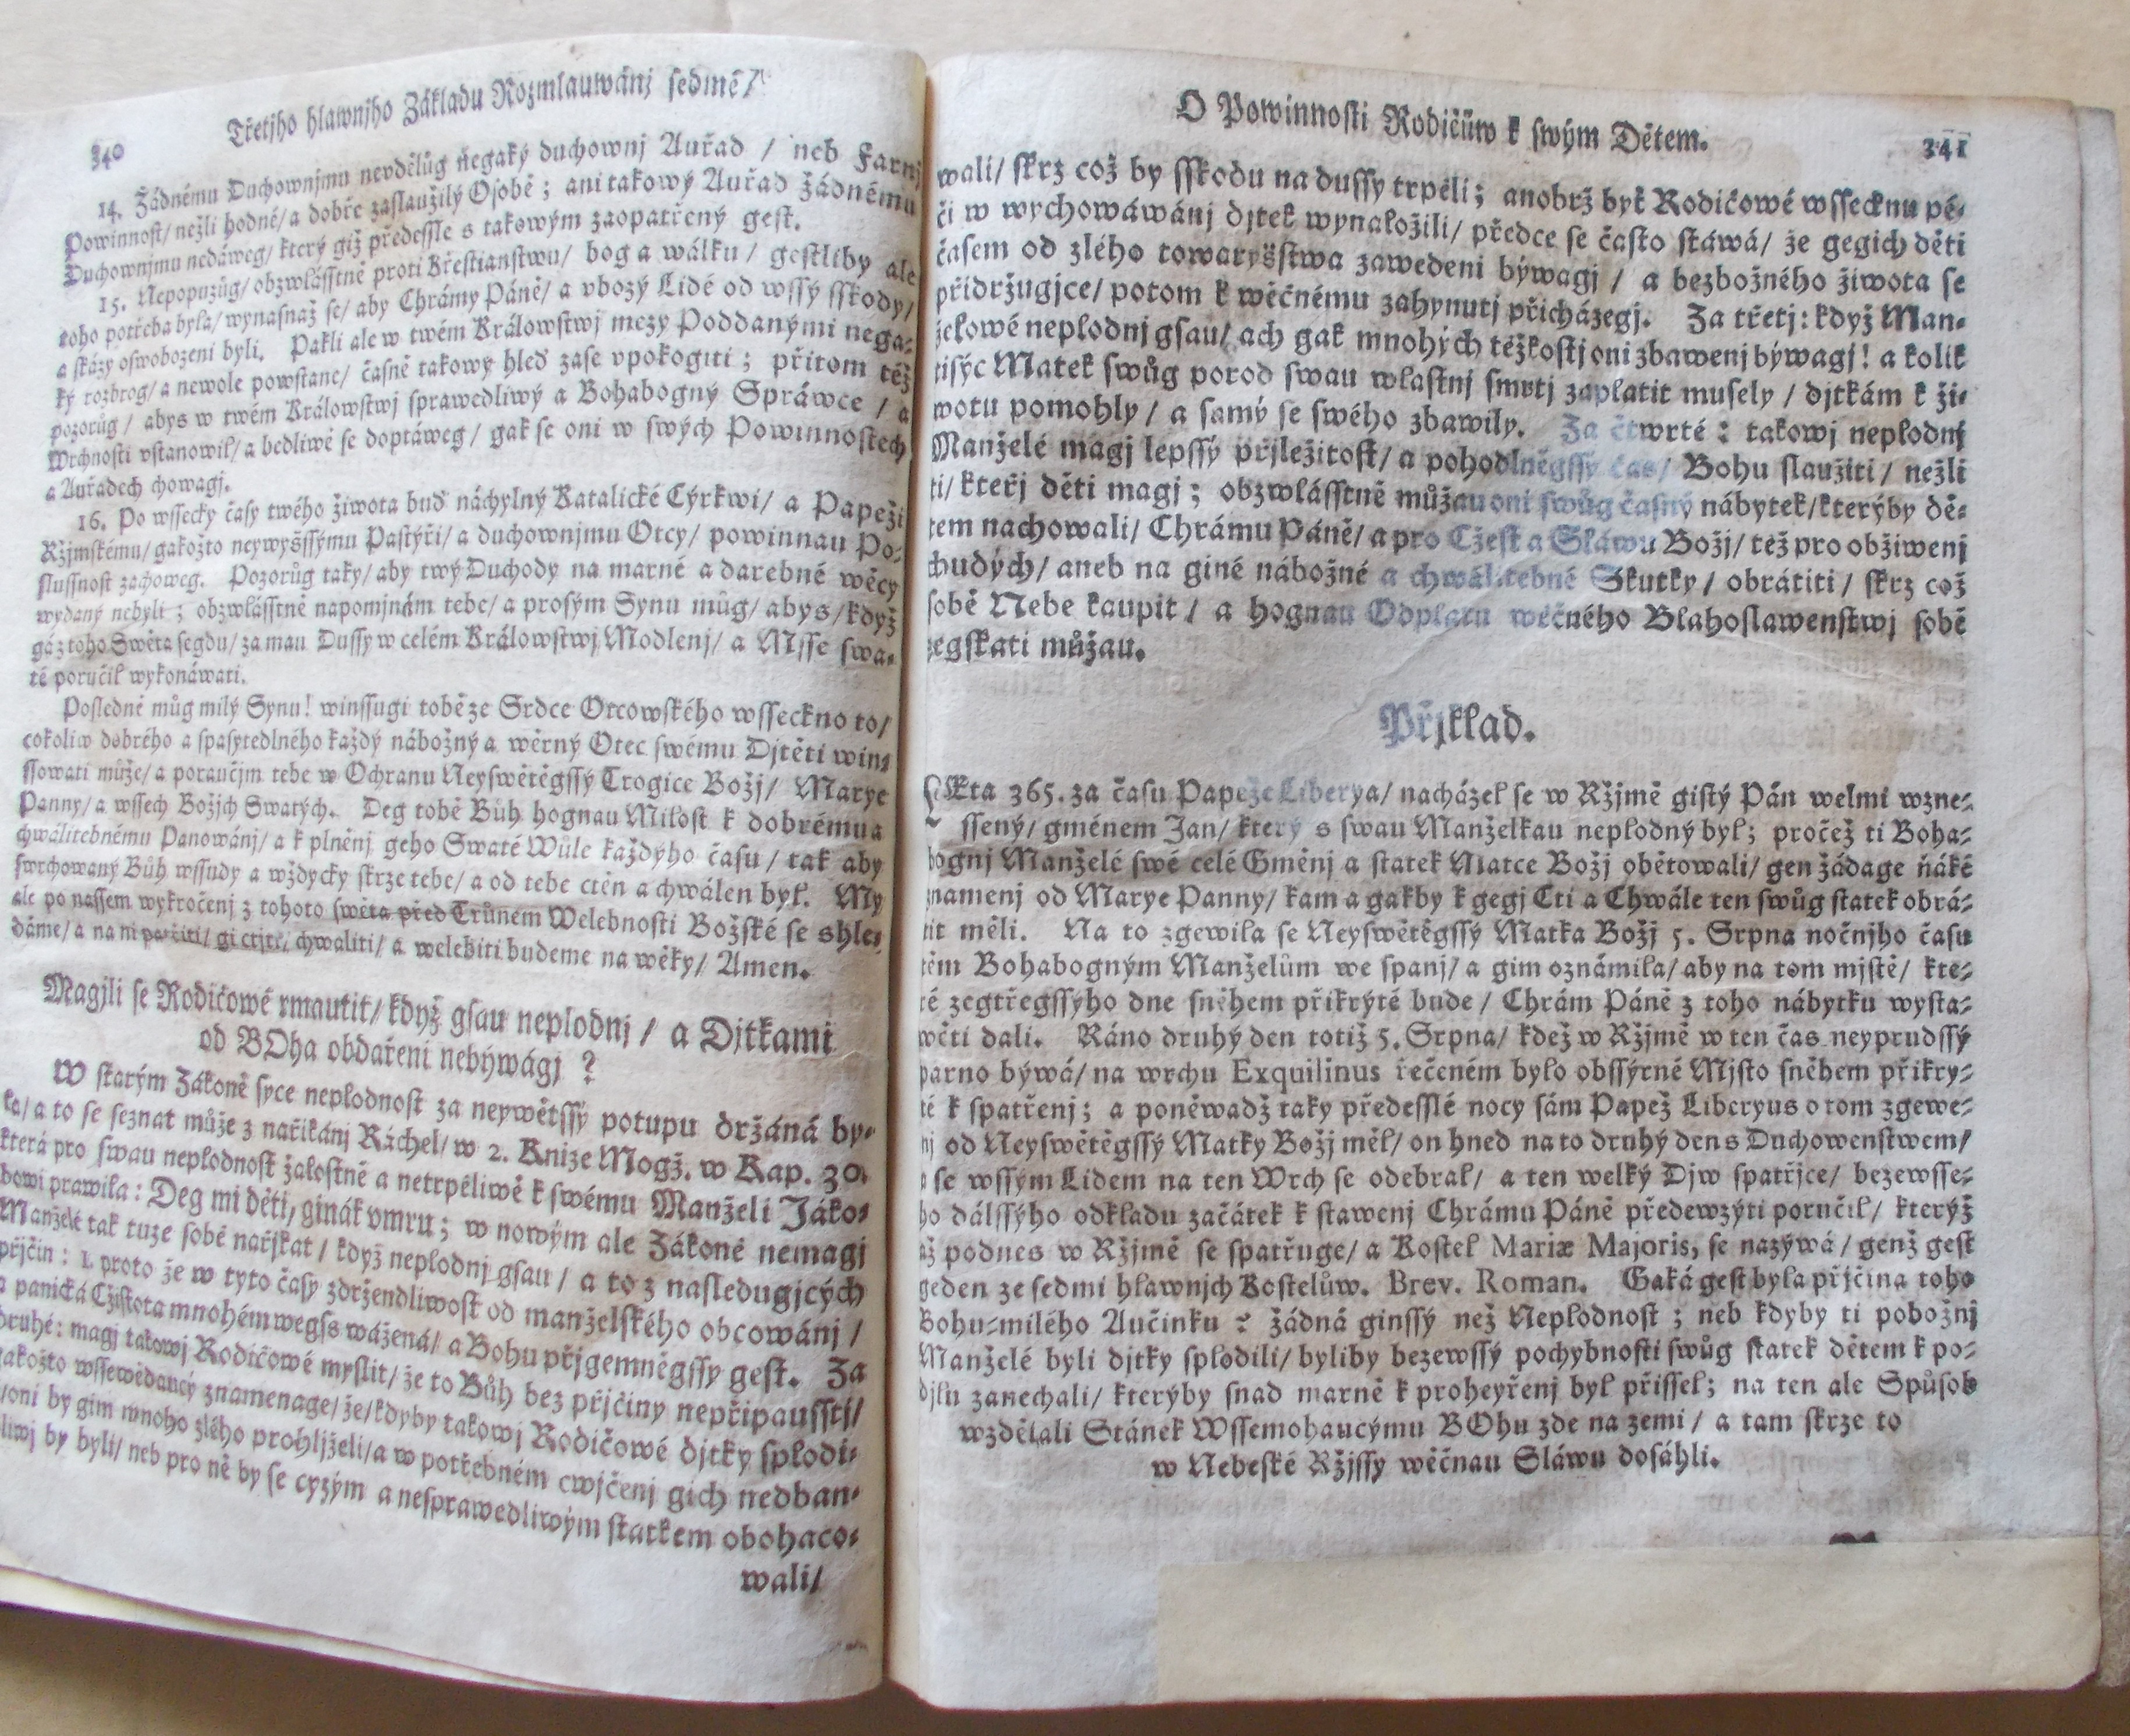 340
Třetjho hlawnjho Základu Rozmlauwánj sedmé/
14. Žádnému Duchownjmu nevděľůg ňegaký duchownj Auřad / neb Farnj
Powinnost/ nežli hodné/ a dobře zaslaužilý Osobě; ani takowý Auřad žádnému
Duchownjmu nedáweg/ který giž předessle s takowým zaopatřený gest.
15. Nepopuzůg/ obzwlásstně proti Křestianstwu/ bog a wálku / gestliby ale
toho potřeba byla/ wynasnaž se/ aby Chrámy Páně/ a vbozý Lidé od wssý sskody/
a skázy oswobozeni byli. Pakli ale w twém Králowstwj mezy Poddanými nega-
ký rozbrog/ a newole powstane/ časně takowý hleď zase vpokogiti; přitom též
pozorůg / abys w twém Králowstwj sprawedliwý a Bohabogný Spráwce / a
Wrchnosti vstanowil/ a bedliwě se doptáweg/ gak se oni w swých Powinnostech
a Auřadech chowagj.
16. Po wssecky časy twého života buď náchylný Katalické Cýrkwi/ a Papeži
Ržjmskému/ gakožto neywyšssýmu Pastýři/ a duchownjmu Otcy/ powinnau Po-
slussnost zachoweg. Pozorůg taky/ aby twý Duchody na marné a darebné wěcy
wydaný nebyli; obzwlásstně napomjnám tebe/ a prosým Synu můg/ abys/ když
gá z toho Swěta segdu/ za mau Dussy w celém Králowstwj Modlenj/ a Msse swa-
té poručil wykonáwati.
Posledně můg milý Synu! winssugi tobě ze Srdce Otcowského wsseckno to/
cokoliw dobrého a spasytedlného každý nábožný a wěrný Otec swému Djtěti win-
ssowati může/ a poraučjm tebe w Ochranu Neyswětěgssý Trogice Božj/ Marye
Panny/ a wssech Božjch Swatých. Deg tobě Bůh hognau Milost k dobrému a
chwálitebnému Panowánj/ a k plněnj geho Swaté Wůle každýho času / tak aby
swrchowaný Bůh wssudy a wždycky skrze tebe/ a od tebe ctěn a chwálen byl. My
ale po nassem wykročenj z tohoto swěta před Trůnem Welebnosti Božské se shle-
dáme/ a na ni patřiti/ gi ctjti, chwaliti/ a welebiti budeme na wěky/ Amen.
Magjli se Rodičowé rmautit/ když gsau neplodnj / a Djtkami
od BOha obdařeni nebýwágj ?
W starým Zákoně syce neplodnost za neywětssý potupu držáná by-
la/ a to se seznat může z nařikánj Ráchel/ w 2. Knize Mogž. w Kap. 30.
která pro swau neplodnost žalostně a netrpěliwě k swému Manželi Jáko-
bowi prawila: Deg mi děti, ginák vmru; w nowým ale Zákoně nemagj
Manželé tak tuze sobě nařjkat / když neplodnj gsau / a to z nasledugjcých
přjčin: 1. proto že w tyto časy zdržendliwost od manželského obcowánj /
a panická Cžistota mnohém wegss wážená/ a Bohu přjgemněgssy gest. Za
druhé: magj takowj Rodičowé myslit/ že to Bůh bez přjčiny nepřipausstj/
gakožto wssewědaucý znamenage/ že/ kdyby takowj Rodičowé djtky splodi-
li/ oni by gim mnoho zlého prohljželi/ a w potřebném cwjčenj gich nedban-
liwj by byli/ neb pro ně by se cyzým a nesprawedliwým statkem obohaco-
wali/
O Powinnosti Rodičůw k swým Dětem.
341
wali/ skrz což by sskodu na dussy trpěli; anobrž byť Rodičowé wssecknu pé-
či w wychowáwánj djtek wynaložili/ předce se často stáwá/ že gegich děti
časem od zlého towaryšstwa zawedeni býwagj / a bezbožného života se
přidržugjce/ potom k wěčnému zahynutj přicházegj. Za třetj: když Man-
želowé neplodnj gsau/ ach gak mnohých těžkostj oni zbawenj býwagj! a kolik
tisýc Matek swůg porod swau wlastnj smrtj zaplatit musely / djtkám k ži-
wotu pomohly / a samý se swého zbawily. Za čtwrté: takowj neplodnj
Manželé magj lepssý přjležitost/ a pohodlněgssy čas/ Bohu slaužiti / nežli
ti/ kteřj děti magj; obzwlásstně můžau oni swůg časný nábytek/ kterýby dě-
tem nachowali/ Chrámu Páně/ a pro Cžest a Sláwu Božj/ též pro obžiwenj
chudých/ aneb na giné nábožné a chwálitebné Skutky / obrátiti / skrz což
sobě Nebe kaupit / a hognau Odplatu wěčného Blahoslawenstwj sobě
zegskati můžau.
Přjklad.
LEta 365. za času Papeže Liberya/ nacházel se w Ržjmě gistý Pán welmi wzne-
ssený/ gménem Jan/ který s swau Manželkau neplodný byl; pročež ti Boha-
bognj Manželé swé celé Gměnj a statek Matce Božj obětowali/ gen žádage ňáké
znamenj od Marye Panny/ kam a gakby k gegj Cti a Chwále ten swůg statek obrá-
tit měli. Na to zgewila se Neyswětěgssý Matka Božj 5. Srpna nočnjho času
těm Bohabogným Manželům we spanj/ a gim oznámila/ aby na tom mjstě/ kte-
ré zegtřegssýho dne sněhem přikrýté bude / Chrám Páně z toho nábytku wysta-
wěti dali. Ráno druhý den totiž 5. Srpna/ kdež w Ržjmě w ten čas neyprudssý
parno býwá/ na wrchu Exquilinus řečeném bylo obssýrné Mjsto sněhem přikry-
té k spatřenj; a poněwadž taky předesslé nocy sám Papež Liberyus o tom zgewe-
nj od Neyswětěgssý Matky Božj měl/ on hned na to druhý den s Duchowenstwem/
a se wssým Lidem na ten Wrch se odebral/ a ten welký Djw spatřjce/ bezewsse-
ho dálssýho odkladu začátek k stawenj Chrámu Páně předewzýti poručil/ kterýž
až podnes w Ržjmě se spatřuge/ a Kostel Mariæ Majoris, se nazýwá / genž gest
geden ze sedmi hlawnjch Kostelůw. Brev. Roman. Gaká gest byla přjčina toho
Bohu-milého Aučinku ? žádná ginssý než Neplodnost; neb kdyby ti pobožnj
Manželé byli djtky splodili/ byliby bezewssý pochybnosti swůg statek dětem k po-
djlu zanechali/ kterýby snad marně k proheyřenj byl přissel; na ten ale Spůsob
wzdělali Stánek Wssemohaucýmu BOhu zde na zemi / a tam skrze to
w Nebeské Ržjssy wěčnau Sláwu dosáhli.